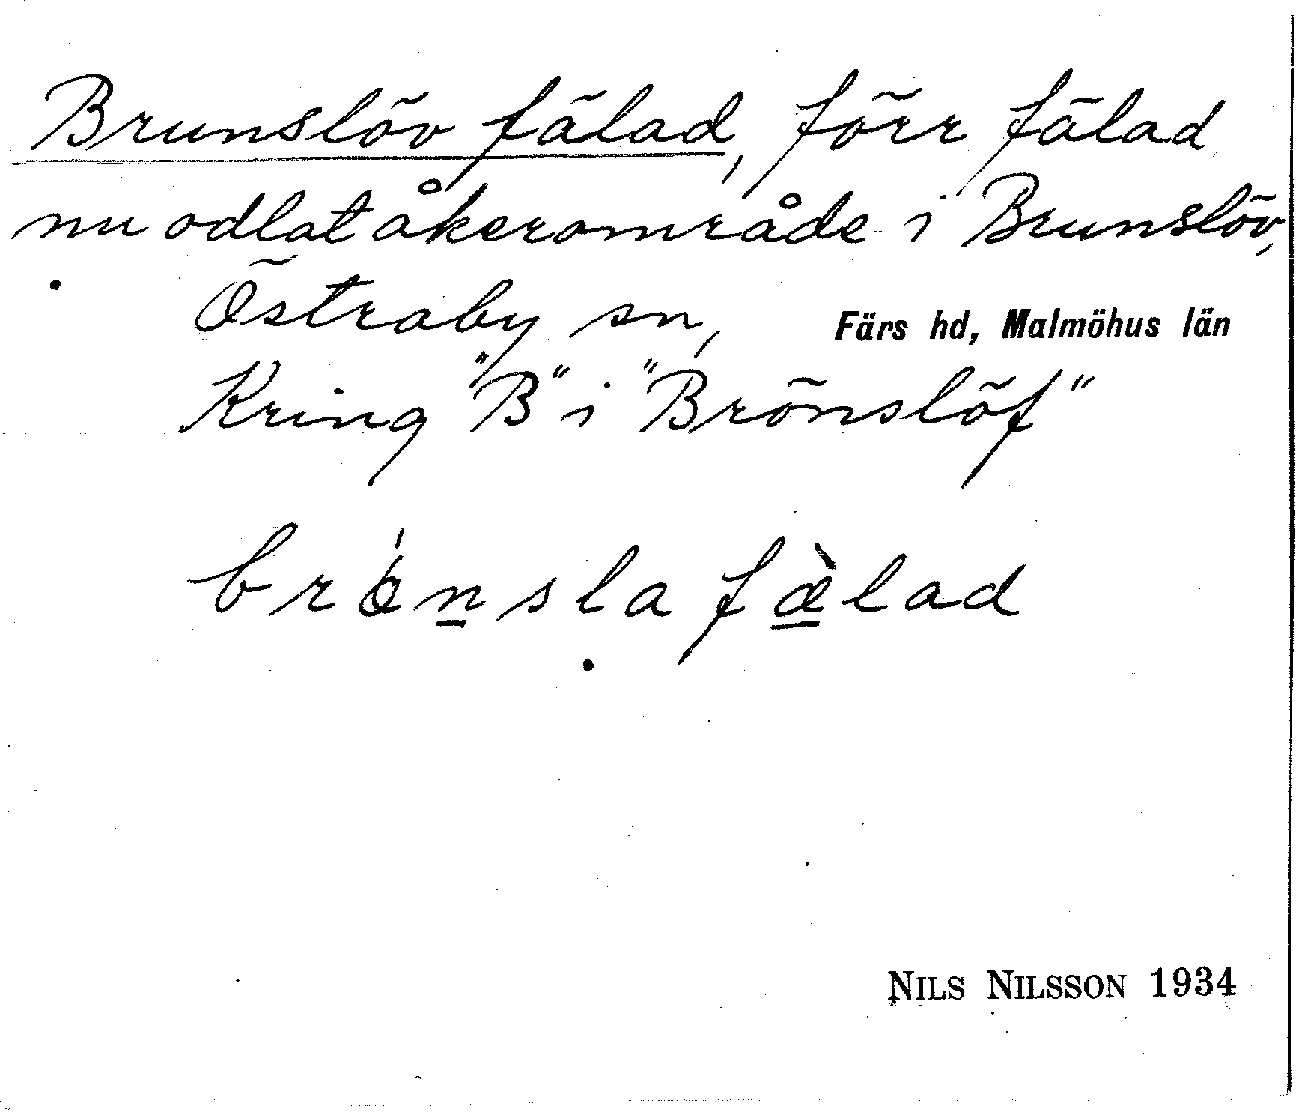 Brunslöv fälad, förr fälad
nu odlat åkerområde i Brunslöv,
Östraby sn, Färs hd, Malmöhus län
Kring "B" i "Brönslöf"
brönsla fælad
NILS NILSSON 1934